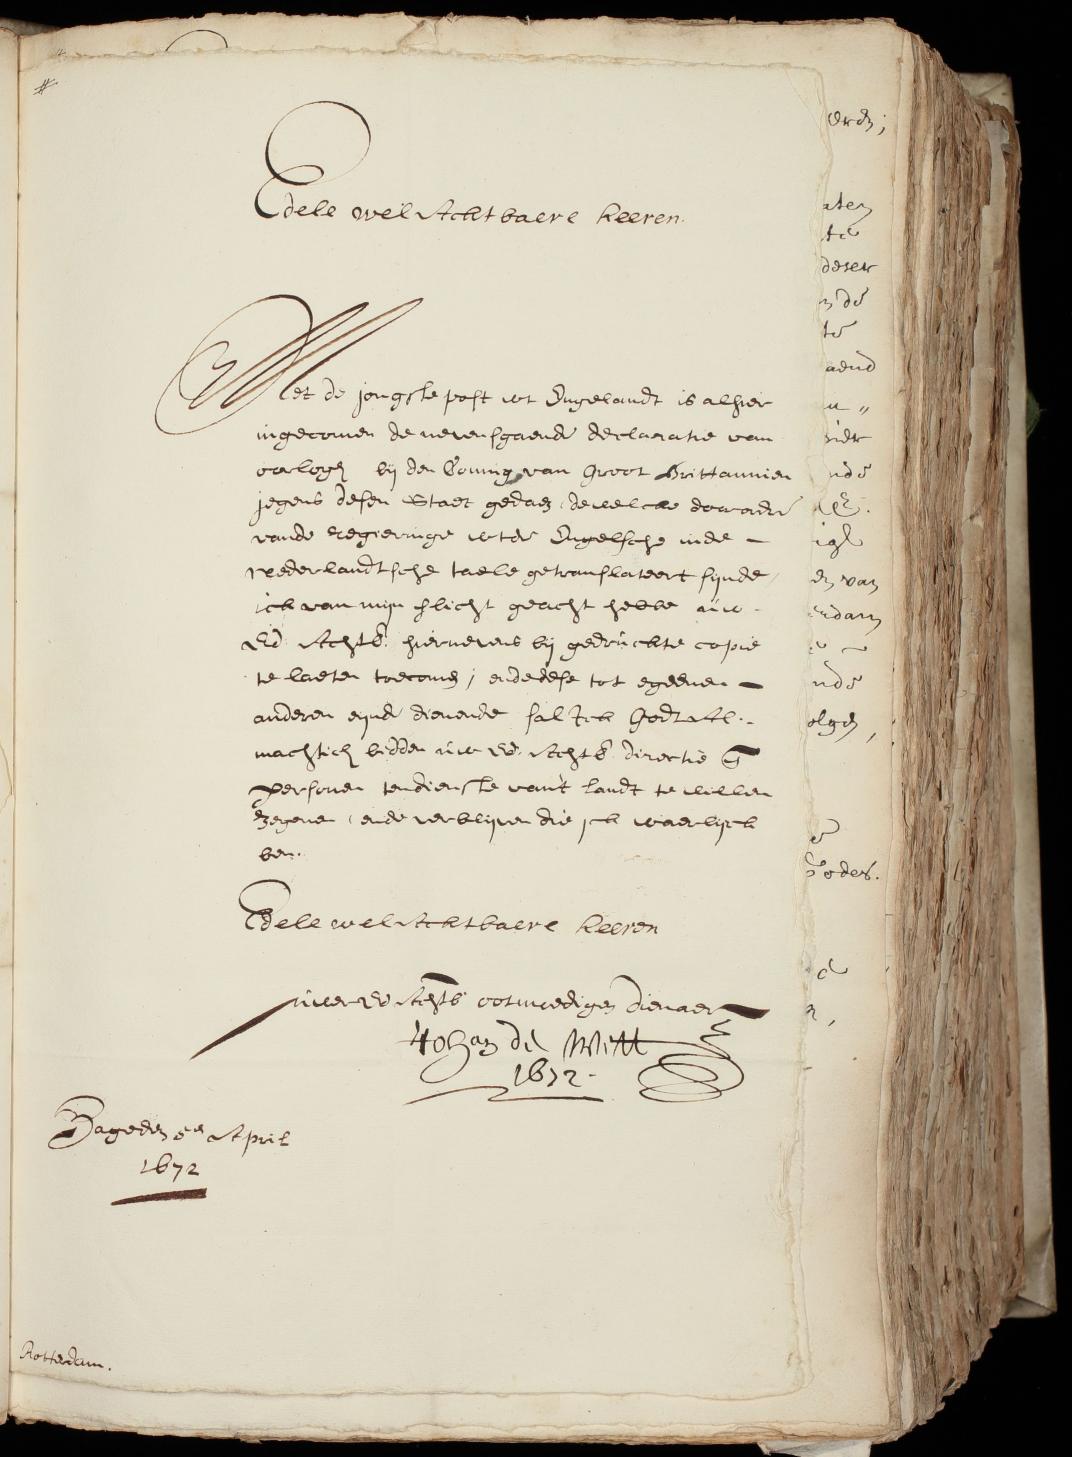 #
Edele wel Achtbaere heeren.
Met de jongste post wt Engelandt is alhier
ingecomen de nevensgaende declaratie van
oorlogh bij den Coning van Groot Brittannien
jegens desen Staet gedaen, dewelcke doorordre
vande Regieringe wtde Engelsche inde -
Nederlandtsche taele getranslateert sijnde,
ick van mijn plicht geacht hebbe uw.
Ed. Achtb. hiernevens bij gedruckte copie
te laeten toecomen; ende dese tot egeenen -
anderen eynde dienende sal Ick Godt Al..
machtich bidden uw Ed. Achtb. directie en
persoonen tendienste van't Landt te willen
zegenen, ende verblijven die ick waerlijck
ben.
Edele wel Achtbaere heeren
uwer Ed. Achtb. ootmoedigen dienaer
Johan de Witt
1672.
Hage den 5en April
1672
Rotterdam.